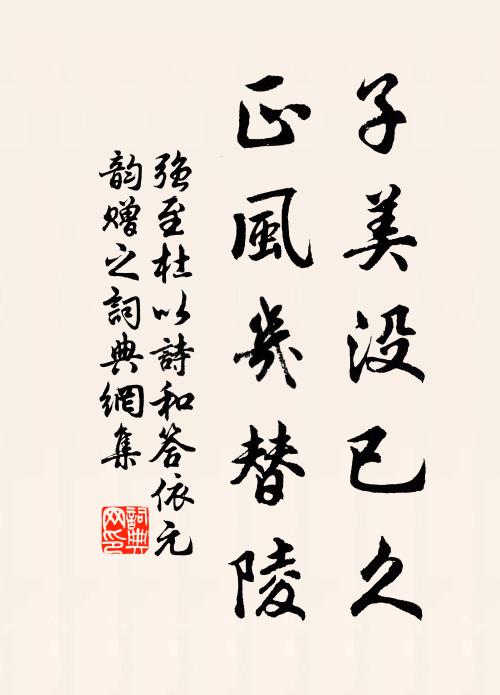 子美没已久
正風幾替陵
強至杜以詩和答依元
韵赠之詞典網集
詞典网印